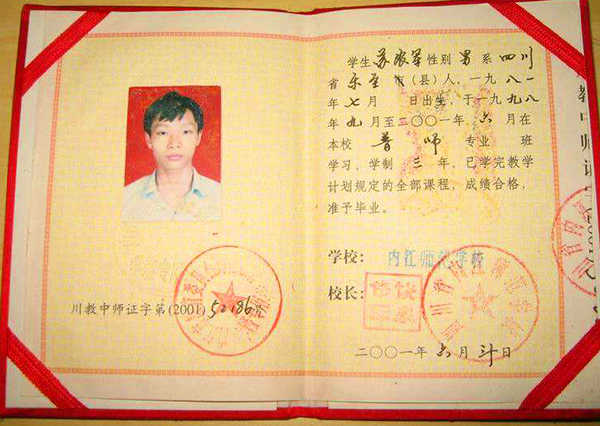 川教中师证字第(2001)52186号
学生 苏农军 性别 男 系 四川
省 乐至 市(县)人,一九八一
年 七 月 日出生,于一九九八
年 九 月至二〇〇一年 六 月在
本校 普师 专业 班
学习,学制 三 年,已学完教学
计划规定的全部课程,成绩合格,
准予毕业。
学校: 内江师范学校
校长:
二〇〇一年 六 月 日